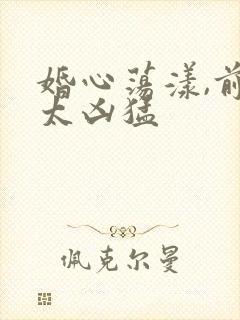 婚心荡漾,前
太凶猛
佩克尔曼